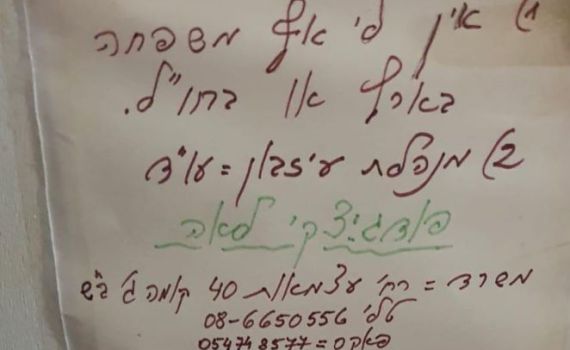 1) אין לי אף משפחה
בארץ או בחו"ל.
2) מנהלת עיזבון = עו"ד
פודגיצקי לאה
משרד = רח' עצמאות 40 קומה ג' ב"ש
טלי 08-6650556
פאקס = 0547748577